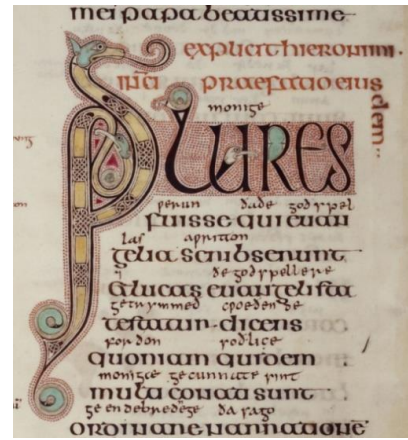 mei papa beatissime
explicit hieronimi.
inci praefatio eius
dem
monige
PLURES
ƿerun ðaðe godspel
fuisse qui euan
auritton
gelia scribserunt
ðe godspellere
& lucas euangelista
getrymmed cƿoeðende
testatur dicens
forðon soðlice
quoniam quidem
monige gecunnate sint
multi conati sunt
ge endebrednege ða sago
ordinare narrationē